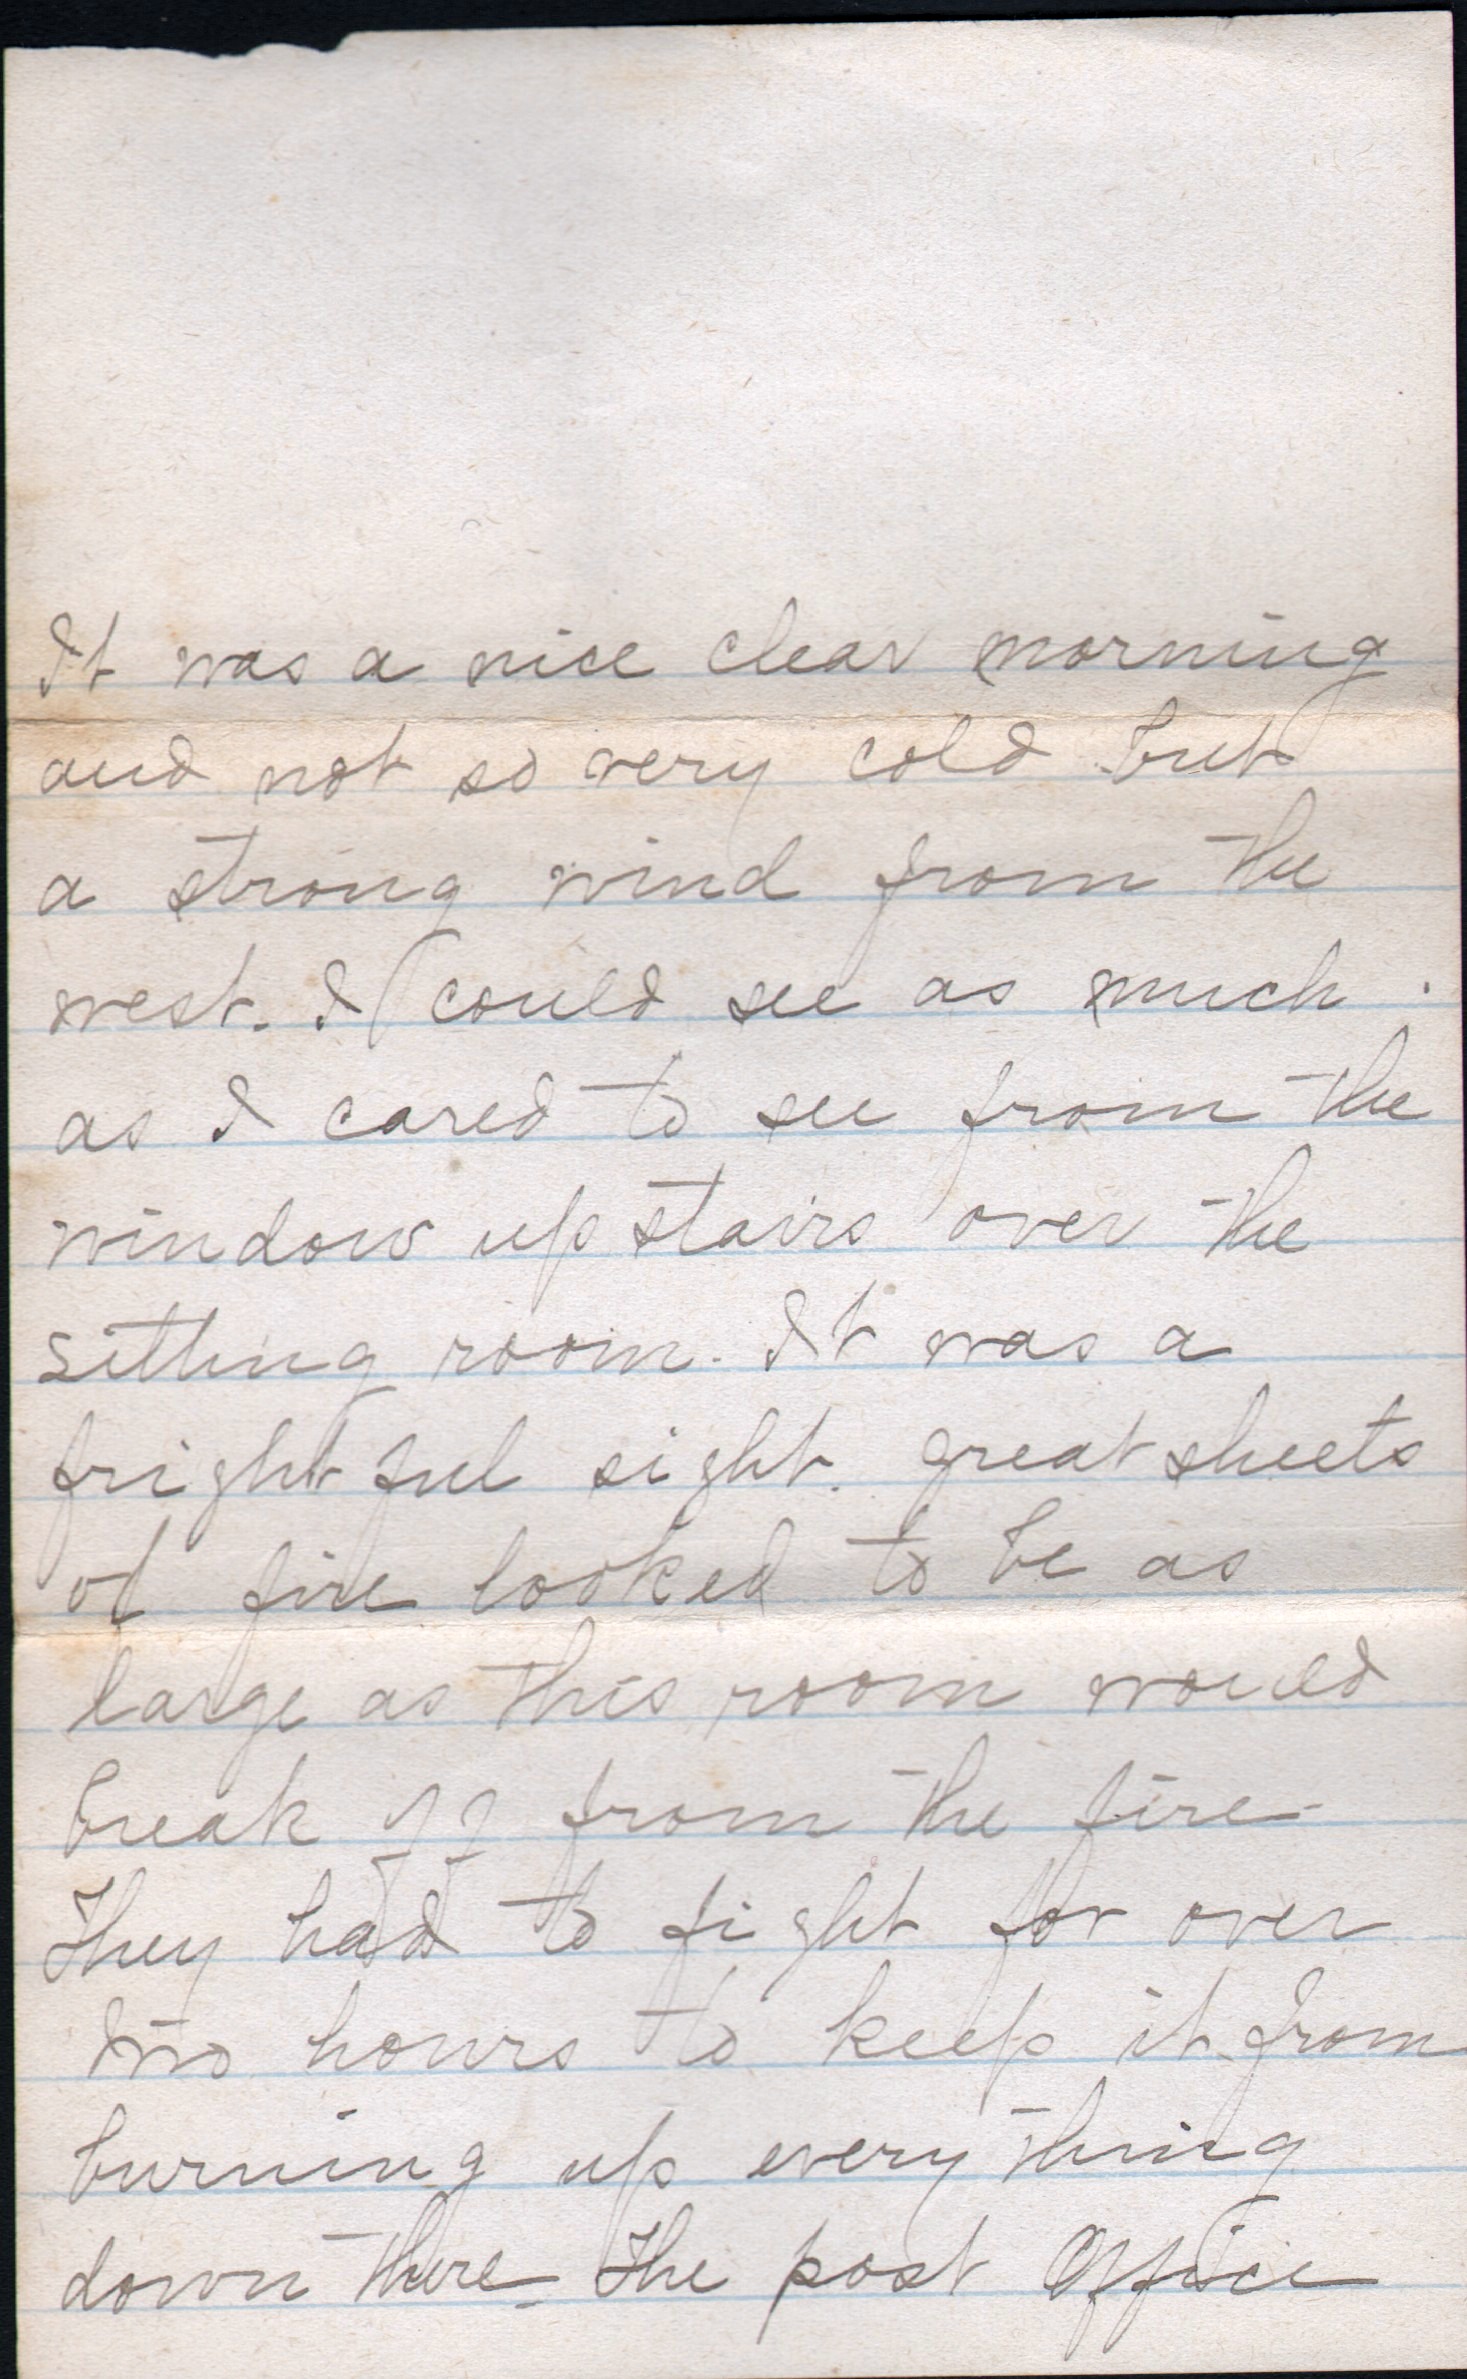 It was a nice clear morning
and not so very cold but
a strong wind from the
west. I could see as much
as I cared to see from the
window up stairs over the
sitting room. It was a
fright ful sight. great sheets
of fire looked to be as
large as this room would
break off from the fire-
They had to fight for over
two hours to keep it from
burning up every thing
down there - The post Office